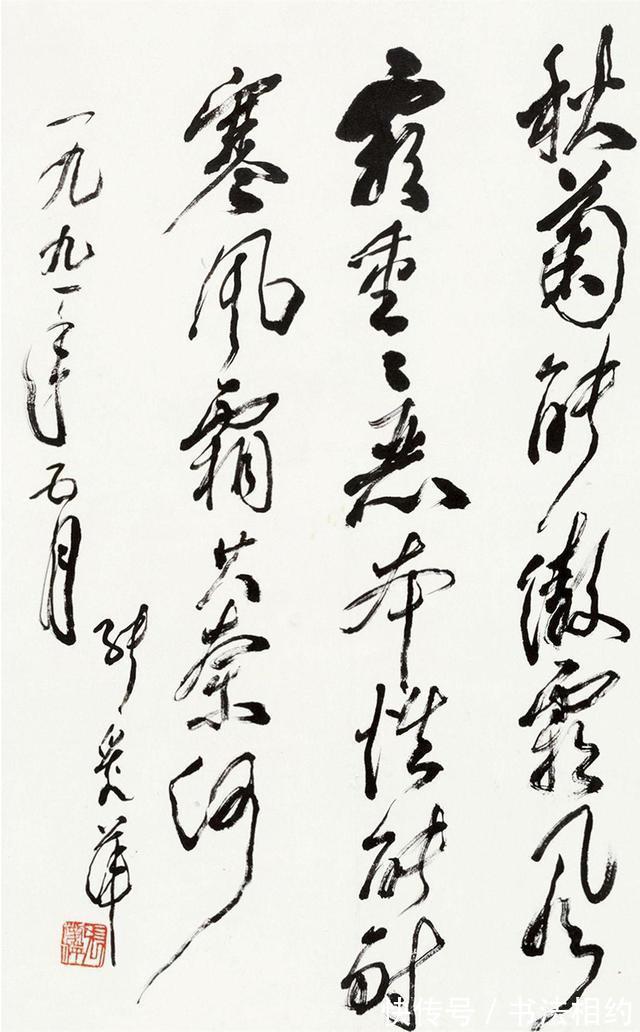 秋菊能傲霜风
霜重々恶本性能耐
寒风霜其奈何
一九九一年五月
张爱萍
快传号 / 书法相约